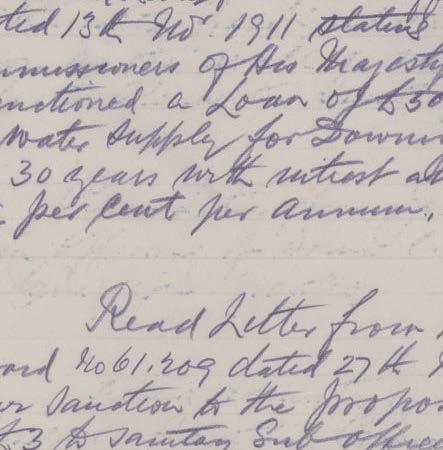 ted 13th Nov 1911 stating
mmissioners of His Majesty
nctioned a Loan of £50
Water Supply for Down
30 years with interest at
per Cent per Annum.
Read Letter from
oard No 61.209 dated 27th
ir Sanction to the propo
£3 to Sanitary Sub Office